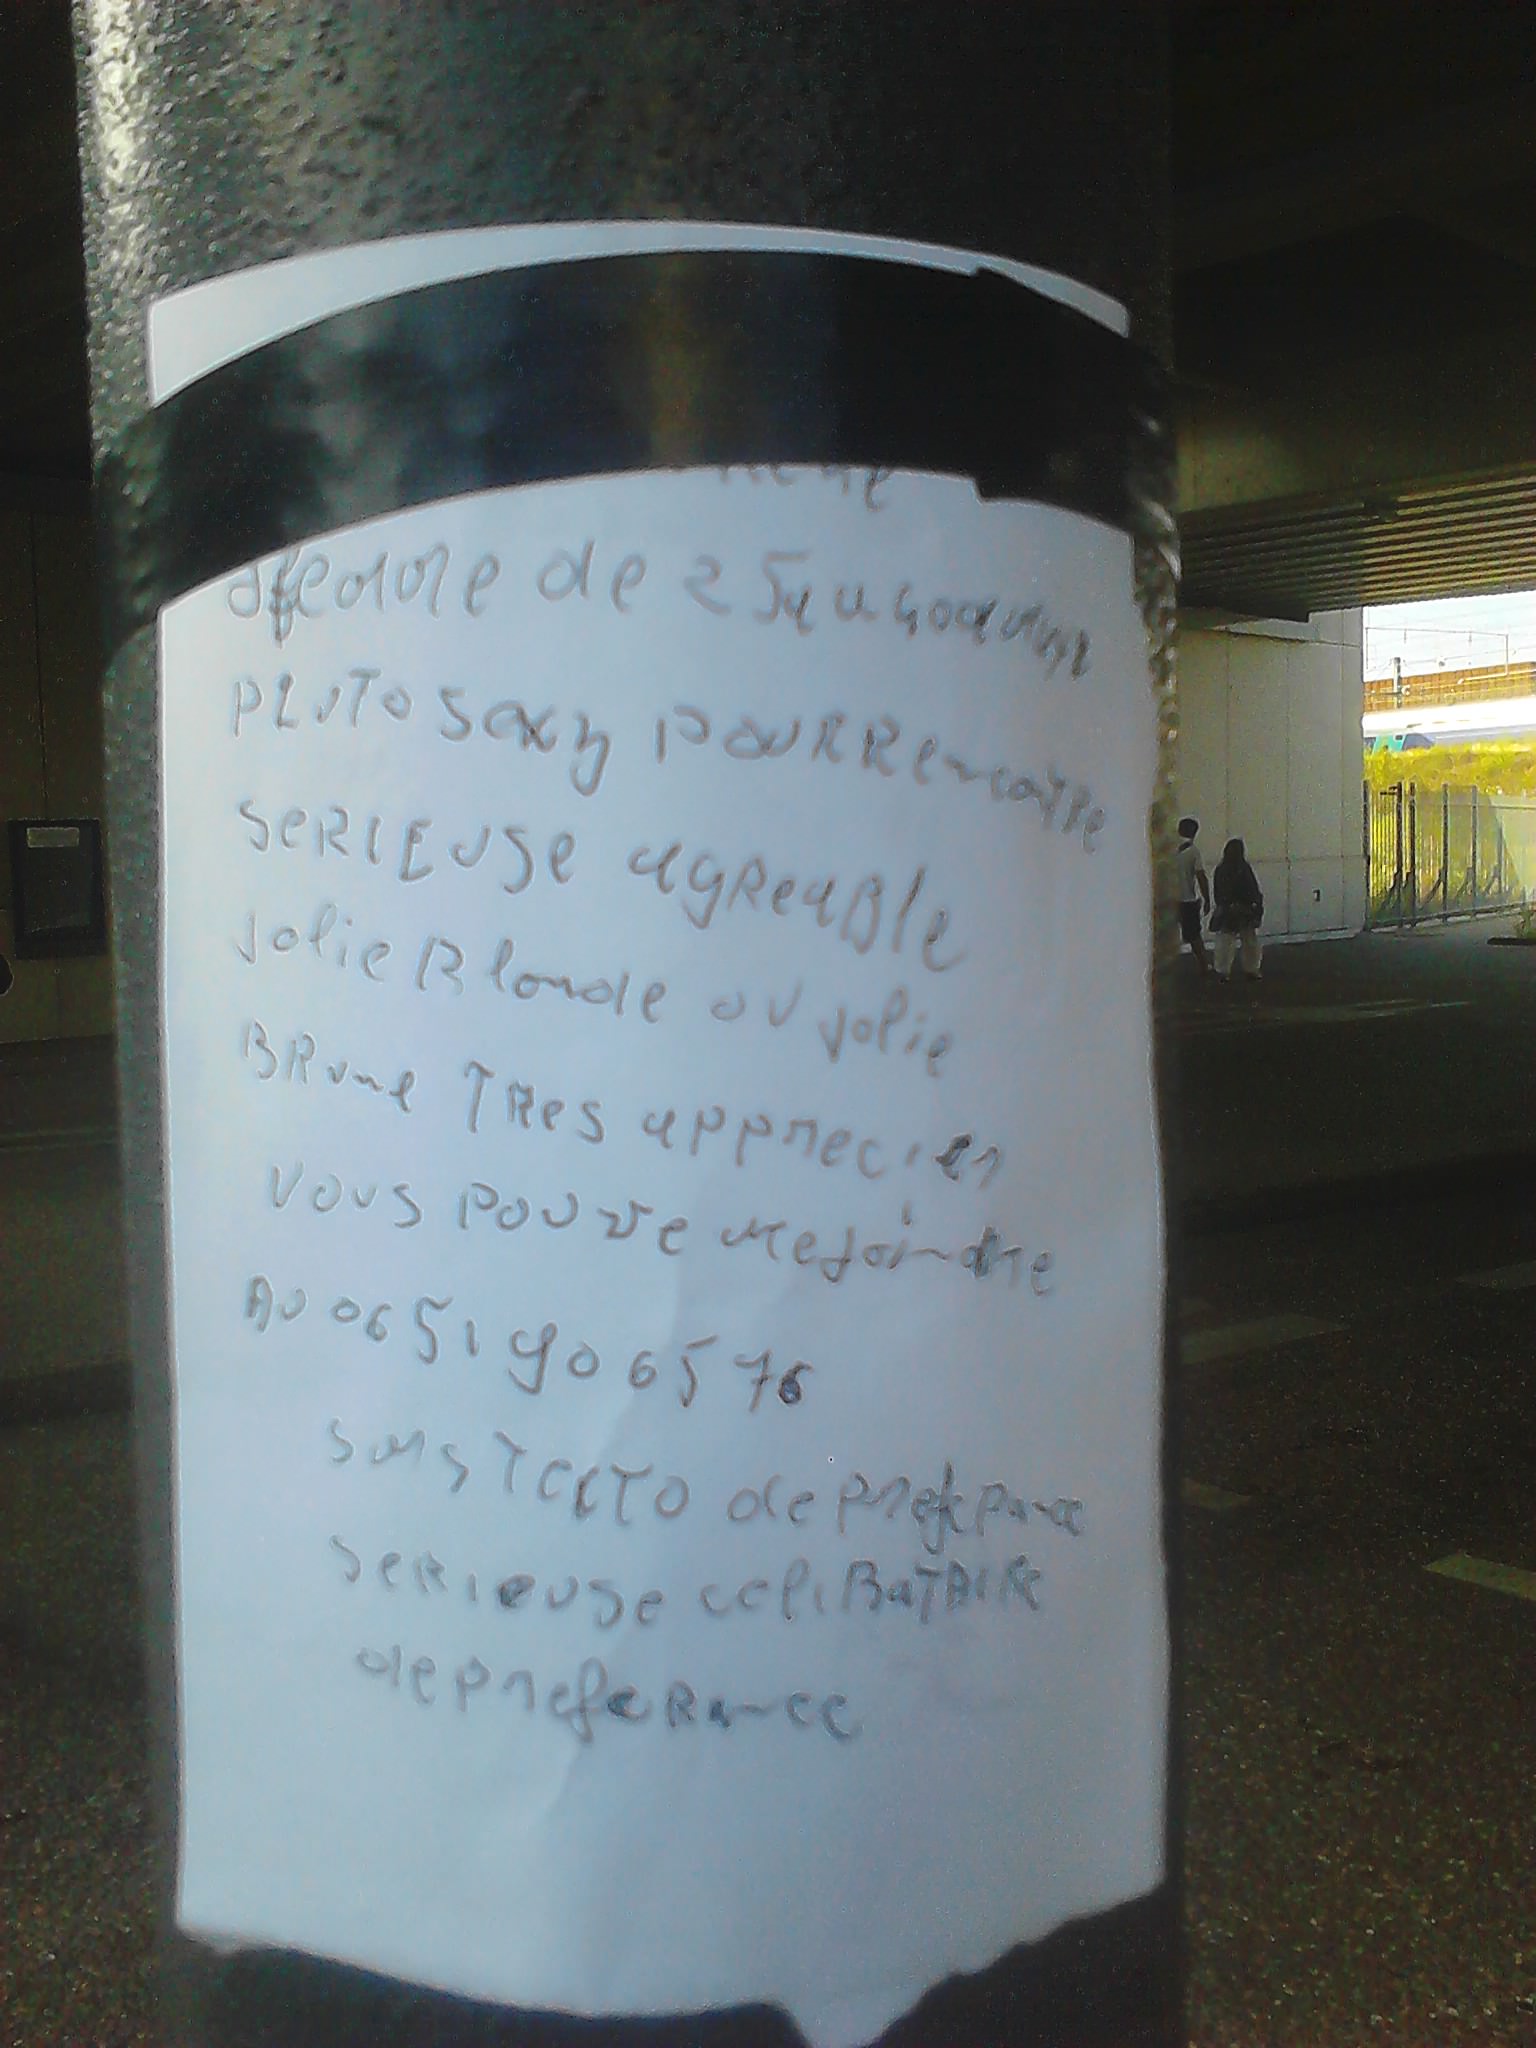 de 25 a 40
PLUTO Sexy POUR Rencontre
SERIEUSE agReaBle
Jolie Blonde ou jolie
BRune TRes apprecier
Vous pouvze me joindre
AU 0651906576
Sms TexTo de preference
SERieuse celiBaTAIRe
de prefeRance